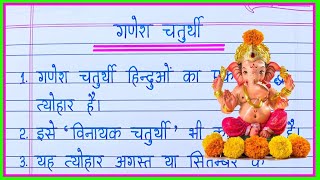 गणेश चतुर्थी
1. गणेश चतुर्थी हिन्दुओं का
त्योहार है।
2. इसे ‘विनायक चतुर्थी’ भी है।
3. यह त्योहार अगस्त या सितम्बर